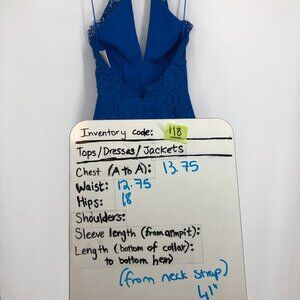 Inventory code: 118
Tops/Dresses/Jackets
Chest (A to A): 13.75
Waist: 12.75
Hips: 18
Shoulders:
Sleeve length (from armpit):
Length (bottom of collar):
to bottom hem)
(from neck strap)
41"